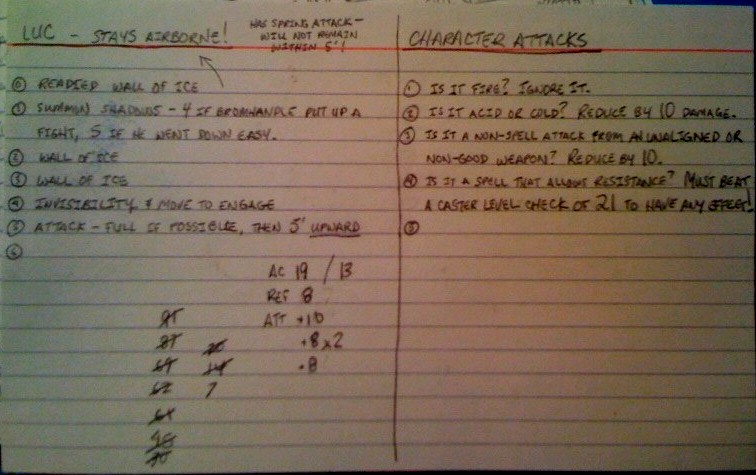 LUC - STAYS AIRBORNE!
HAS SPRING ATTACK -
WILL NOT REMAIN
WITHIN 5'!
0 READIED WALL OF ICE
1 SUMMON SHADOWS - 4 IF BROMHANDLE PUT UP A
FIGHT, 5 IF HE WENT DOWN EASY.
2 WALL OF ICE
3 WALL OF ICE
4 INVISIBILITY & MOVE TO ENGAGE
5 ATTACK - FULL IF POSSIBLE, THEN 5' UPWARD
6
AC 19 / 13
REF 8
ATT +10
+8 x 2
+8
7
CHARACTER ATTACKS
1 IS IT FIRE? IGNORE IT.
2 IS IT ACID OR COLD? REDUCE BY 10 DAMAGE.
3 IS IT A NON-SPELL ATTACK FROM AN UNALIGNED OR
NON-GOOD WEAPON? REDUCE BY 10.
4 IS IT A SPELL THAT ALLOWS RESISTANCE? MUST BEAT
A CASTER LEVEL CHECK OF 21 TO HAVE ANY EFFECT!
5